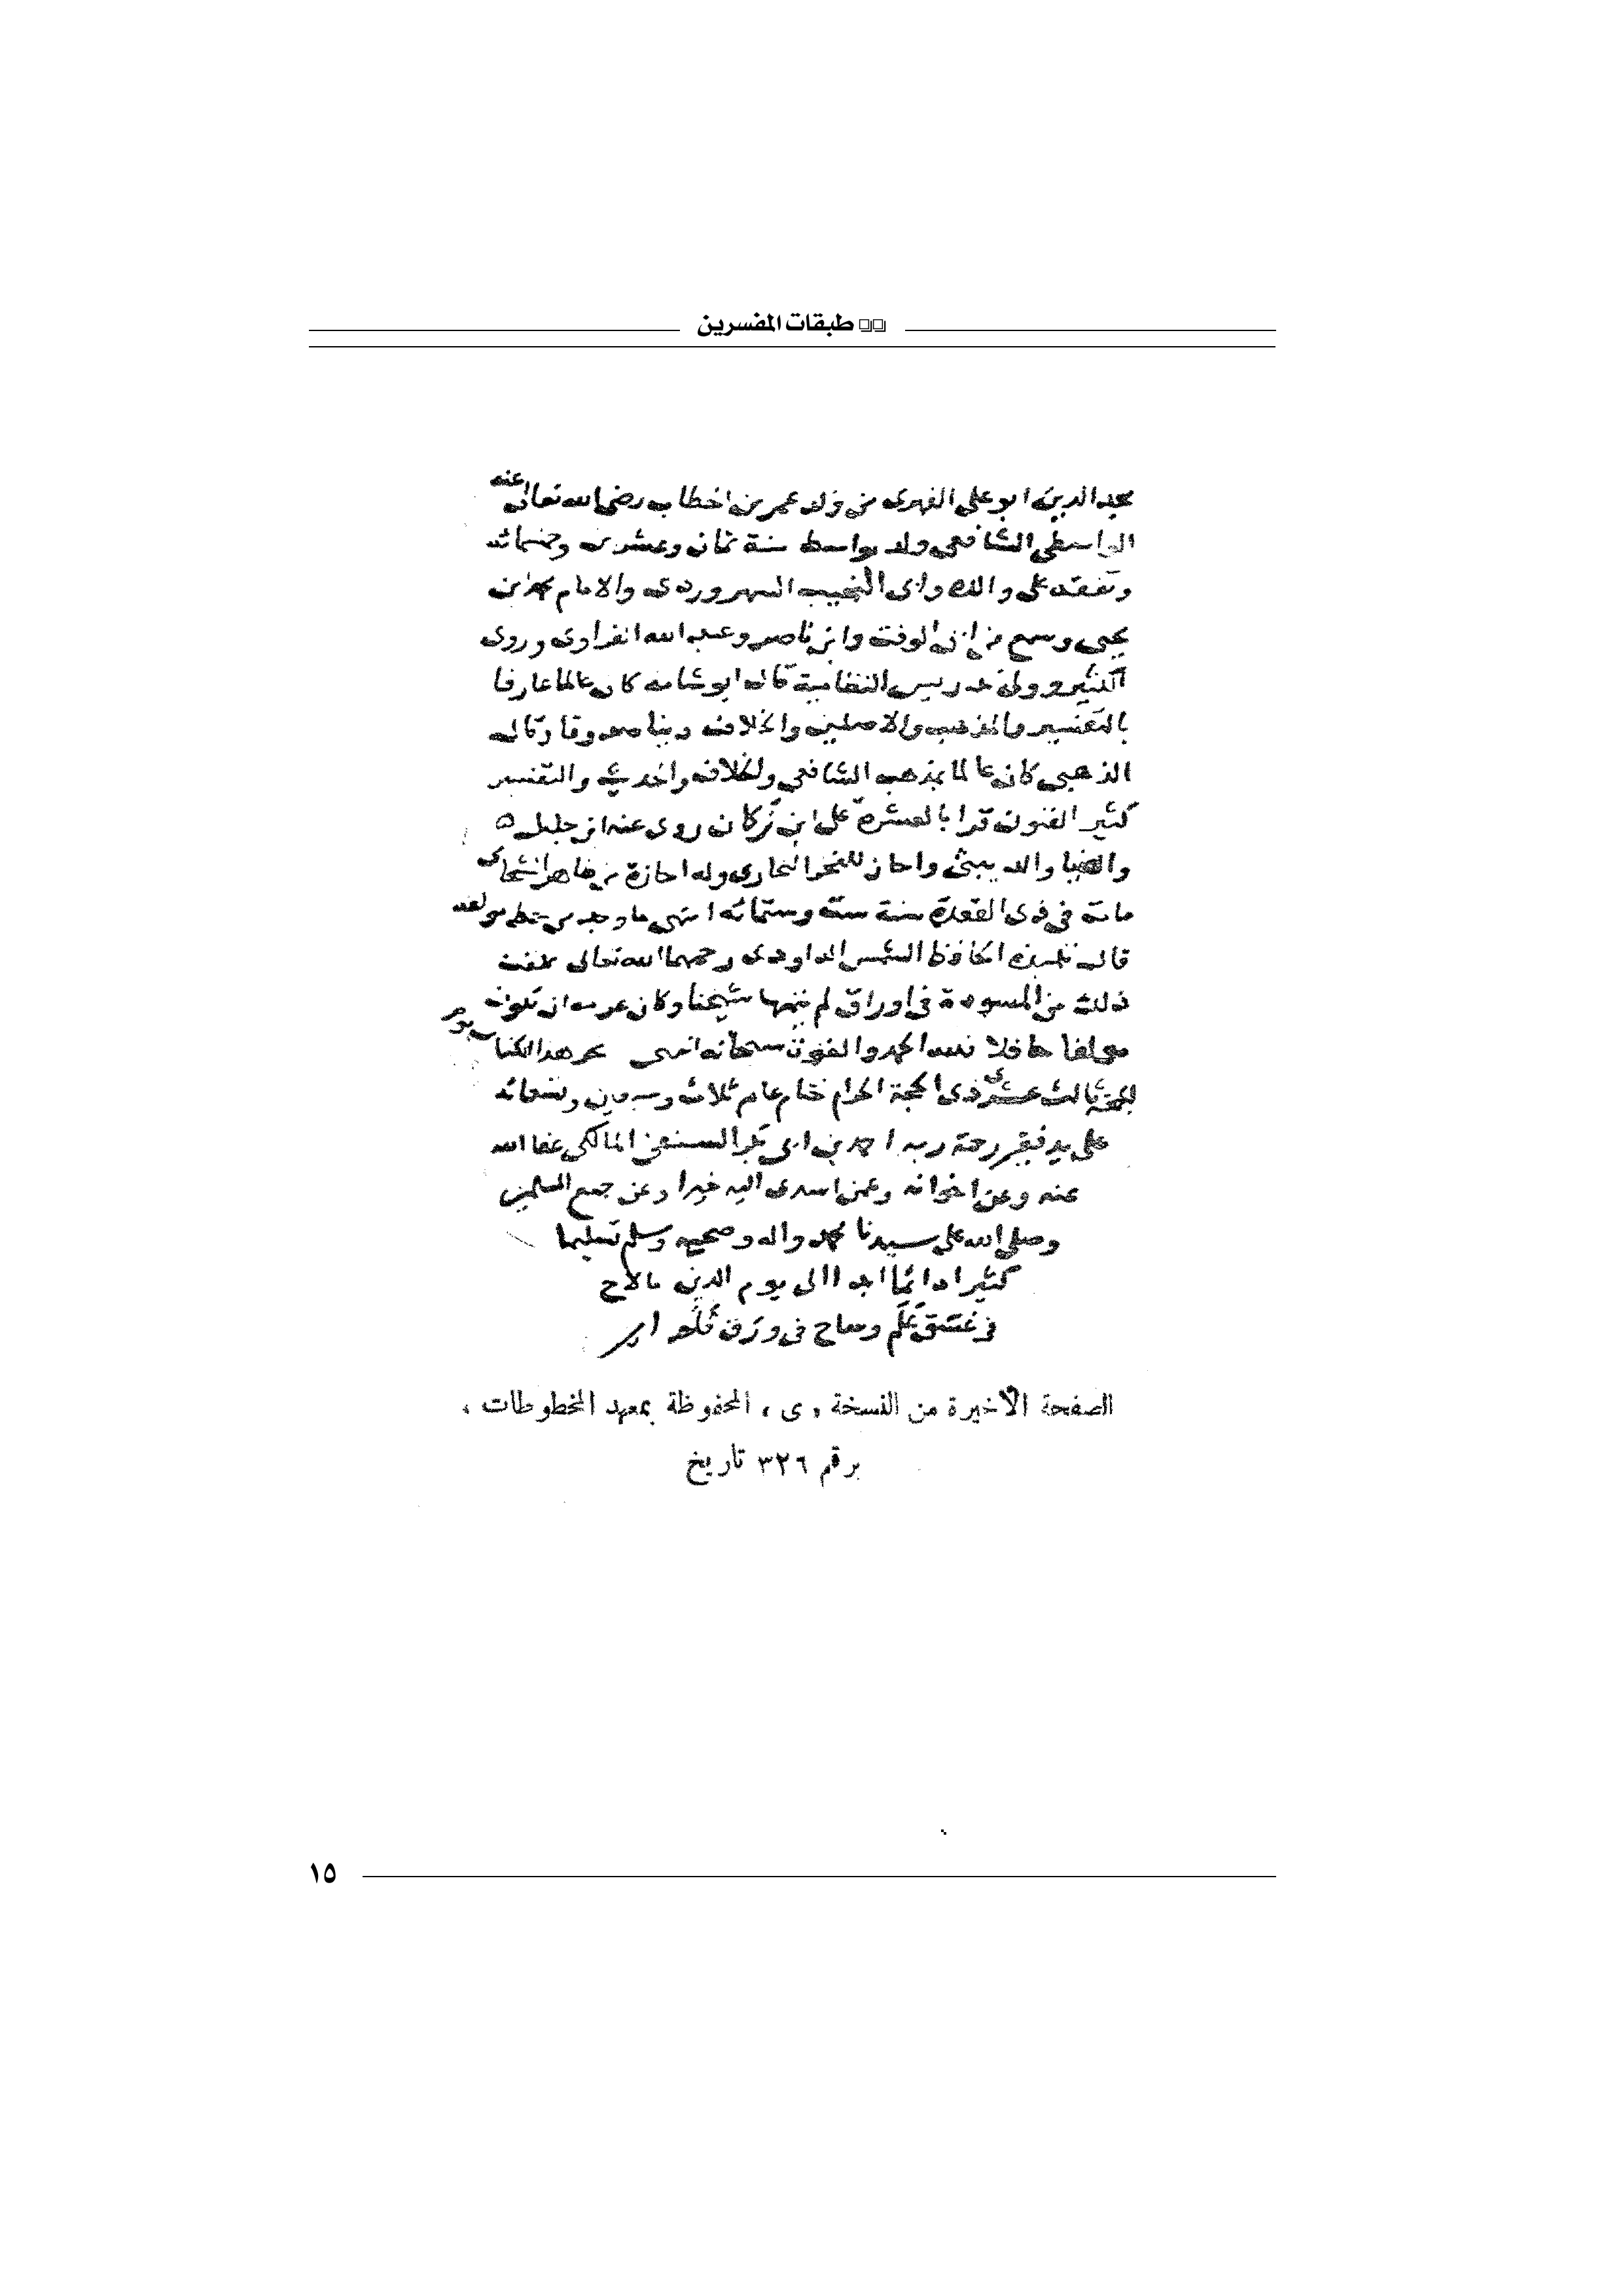 طبقات المفسرين
مجد الدين ابو على الفهرى من ولد عمر بن الخطاب رضى الله تعالى عنه
الواسطى الشافعى ولد بواسط سنة ثمان وعشرين وخمسمائه
وتفقه على والده وابى النجيب السهروردى والامام محمد بن
يحيى وسمع من ابى الوقت وابن ناصر وعبد الله الفراوى وروى
الكثير وولى تدريس النظامية قال ابو شامه كان عالما عارفا
بالتفسير والمذهب والاصلين والخلاف دينا صدوقا وقال
الذهبى كان عالما بمذهب الشافعى والخلاف والحديث والتفسير
كثير الفنون قرا بالعشرة على ابن تركان روى عنه ابن خليل
والضيا والدبيثى واجاز للفخر البخارى وله اجازة من زاهر الشحامى
مات فى ذى القعدة سنة ستة وستمائه انتهى ما وجد من خط مولفه
قال تلميذه الحافظ الشمس الداودى رحمهما الله تعالى علقت
ذلك من المسودة فى اوراق لم يتمها شيخنا وكان عزمه ان تكون
مولفا حافلا لله الحمد والقوة سبحانه انتهى نجز هذا الكتاب يوم
الجمعة ثالث عشرى ذى الحجة الحرام ختام عام ثلاث وسبعين وتسعمائه
على يد فقير رحمة ربه احمد بن ابى بكر المالكى عفا الله
عنه وعن اخوانه وعمن اسدى اليه خيرا وعن جميع المسلمين
وصلى الله على سيدنا محمد واله وصحبه وسلم تسليما
كثيرا دائما ابدا الى يوم الدين ما لاح
فى غسق علم وصاح فى ورق
الصفحة الأخيرة من النسخة «ى» المحفوظة بمعهد المخطوطات ،
برقم ٣٢٦ تاريخ
١٥